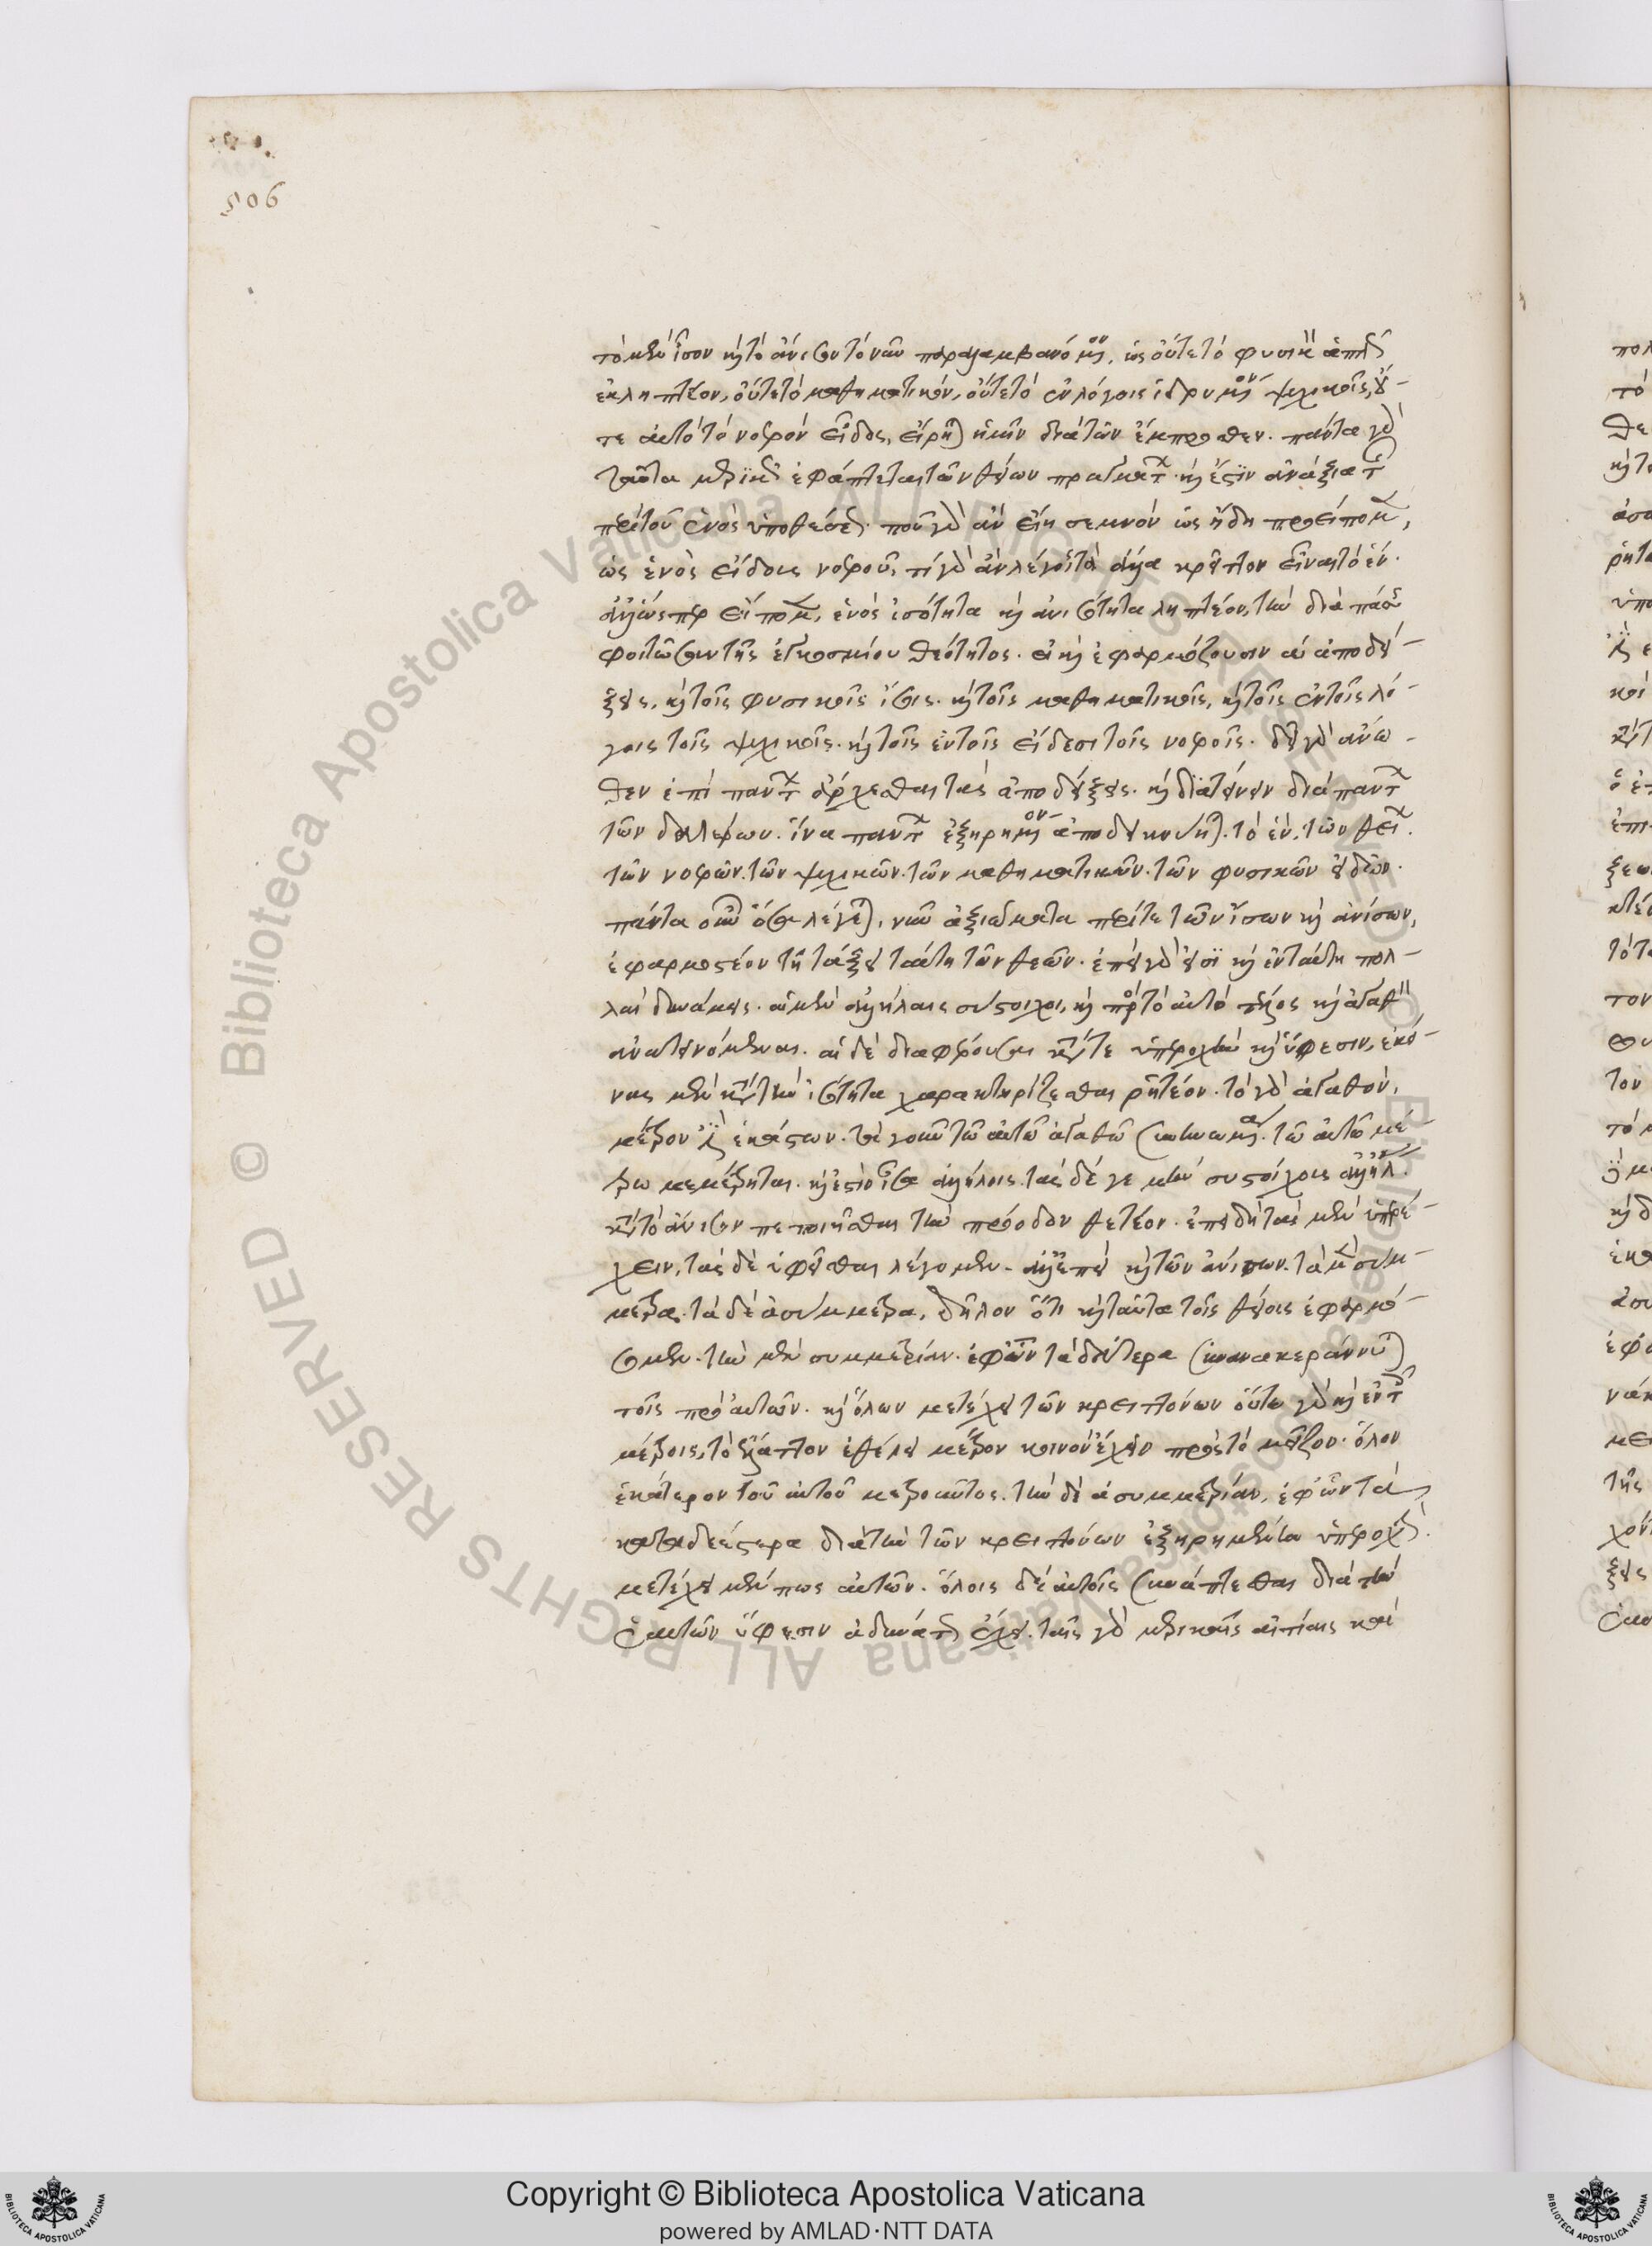 506
τὸ μὲν ἴσον καὶ τὸ ἄνισον τὸ νῦν παραλαμβανόμενον, ὡς οὔτε τὸ φυσικὸν ἁπλῶς
ἐκληπτέον, οὔτε τὸ μαθηματικόν, οὔτε τὸ ἐν λόγοις ἱδρυμένον ψυχικοῖς, οὔ-
τε αὐτὸ τὸ νοερὸν εἶδος, εἴρηται ἡμῖν διὰ τῶν ἔμπροσθεν. πάντα γὰρ
ταῦτα μερικῶς ἐφάπτεται τῶν θείων πραγμάτων. καὶ ἔστιν ἀνάξια τῆς
περὶ τοῦ ἑνὸς ὑποθέσεως. ποῦ γὰρ ἂν εἴη σεμνὸν ὡς ἤδη προείπομεν,
ὡς ἑνὸς εἴδους νοεροῦ, τί γὰρ ἂν λέγοιτο ἀλλὰ κρεῖττον εἶναι τὸ ἕν.
ἀλλ' ὥσπερ εἴπομεν, ἑνὸς ἰσότητα καὶ ἀνισότητα ληπτέον, τὴν διὰ πάσης
φοιτῶσαν τῆς ἐγκοσμίου θεότητος. εἰ καὶ ἐφαρμόζουσιν αἱ ἀποδεί-
ξεις, καὶ τοῖς φυσικοῖς ἴσοις. καὶ τοῖς μαθηματικοῖς, καὶ τοῖς ἐν τοῖς λό-
γοις τοῖς ψυχικοῖς. καὶ τοῖς ἐν τοῖς εἴδεσι τοῖς νοεροῖς. δεῖ γὰρ ἄνω-
θεν ἐπὶ πάντων ἄρχεσθαι τὰς ἀποδείξεις. καὶ διατείνειν διὰ πάντων
τῶν δευτέρων. ἵνα πάντων ἐξῃρημένον ἀποδεικνύηται τὸ ἕν, τῶν θείων.
τῶν νοερῶν. τῶν ψυχικῶν. τῶν μαθηματικῶν. τῶν φυσικῶν εἰδῶν.
πάντα οὖν ὅσα λέγεται νῦν ἀξιώματα περί τε τῶν ἴσων καὶ ἀνίσων,
ἐφαρμοστέον τῇ τάξει ταύτῃ τῶν θεῶν. ἐπεὶ γὰρ εἰσὶ καὶ ἐν ταύτῃ πολ-
λαὶ δυνάμεις. αἱ μὲν ἀλλήλαις σύστοιχοι, καὶ πρὸς τὸ αὐτὸ τέλος καὶ ἀγαθὸν
ἀνατεινόμεναι. αἱ δὲ διαφέρουσαι κατά τε ὑπεροχὴν καὶ ὕφεσιν, ἐκεί-
νας μὲν κατὰ τὴν ἰσότητα χαρακτηρίζεσθαι ῥητέον. τὸ γὰρ ἀγαθόν,
μέτρον ἐστὶν ἑκάστων. τὰ γοῦν τῷ αὐτῷ ἀγαθῷ συνηνωμένα τῷ αὐτῷ μέ-
τρῳ μεμέτρηται. καὶ ἔστιν ἴσα ἀλλήλοις. τὰς δέ γε μὴ συστοίχους ἀλλήλαις
κατὰ τὸ ἄνισον πεποιῆσθαι τὴν πρόοδον θετέον. ἐπειδὴ τὰς μὲν ὑπερέ-
χειν, τὰς δὲ ὑφεῖσθαι λέγομεν. ἀλλ' ἐπεὶ καὶ τῶν ἀνίσων. τὰ μὲν σύμ-
μετρα. τὰ δὲ ἀσύμμετρα, δῆλον ὅτι καὶ ταῦτα τοῖς θείοις ἐφαρμό-
σομεν. τὴν μὲν συμμετρίαν. ἐφ' ὧν τὰ δεύτερα συνανακεράννυται
τοῖς πρὸ αὐτῶν. καὶ ὅλων μετέχει τῶν κρειττόνων οὕτω γὰρ καὶ ἐν τοῖς
μέτροις, τὸ ἔλαττον ἐθέλει μέτρον κοινὸν ἔχειν πρὸς τὸ μεῖζον. ὅλον
ἑκάτερον τοῦ αὐτοῦ μετροῦντος. τὴν δὲ ἀσυμμετρίαν, ἐφ' ὧν τὰ
καταδεέστερα διὰ τὴν τῶν κρειττόνων ἐξῃρημένην ὑπεροχὴν.
μετέχει μέν πως αὐτῶν. ὅλοις δὲ αὐτοῖς συνάπτεσθαι διὰ τὴν
ἑαυτῶν ὕφεσιν ἀδυνάτως ἔχει. ταῖς γὰρ μερικαῖς αἰτίαις καὶ
Copyright © Biblioteca Apostolica Vaticana
powered by AMLAD·NTT DATA